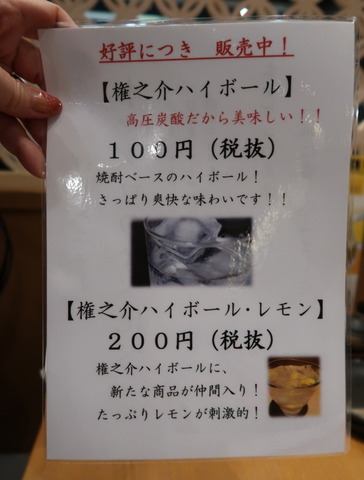 好評につき 販売中！
【権之介ハイボール】
高圧炭酸だから美味しい！！
１００円（税抜）
焼酎ベースのハイボール！
さっぱり爽快な味わいです！！
【権之介ハイボール・レモン】
２００円（税抜）
権之介ハイボールに、
新たな商品が仲間入り！
たっぷりレモンが刺激的！